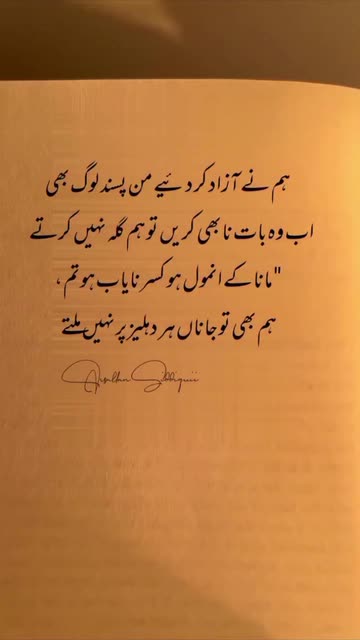 ہم نے آزاد کر دئیے من پسند لوگ بھی
اب وہ بات نا بھی کریں تو ہم گلہ نہیں کرتے
"مانا کے انمول ہو کسر نایاب ہو تم ،
ہم بھی تو جاناں ہر دہلیز پر نہیں ملتے